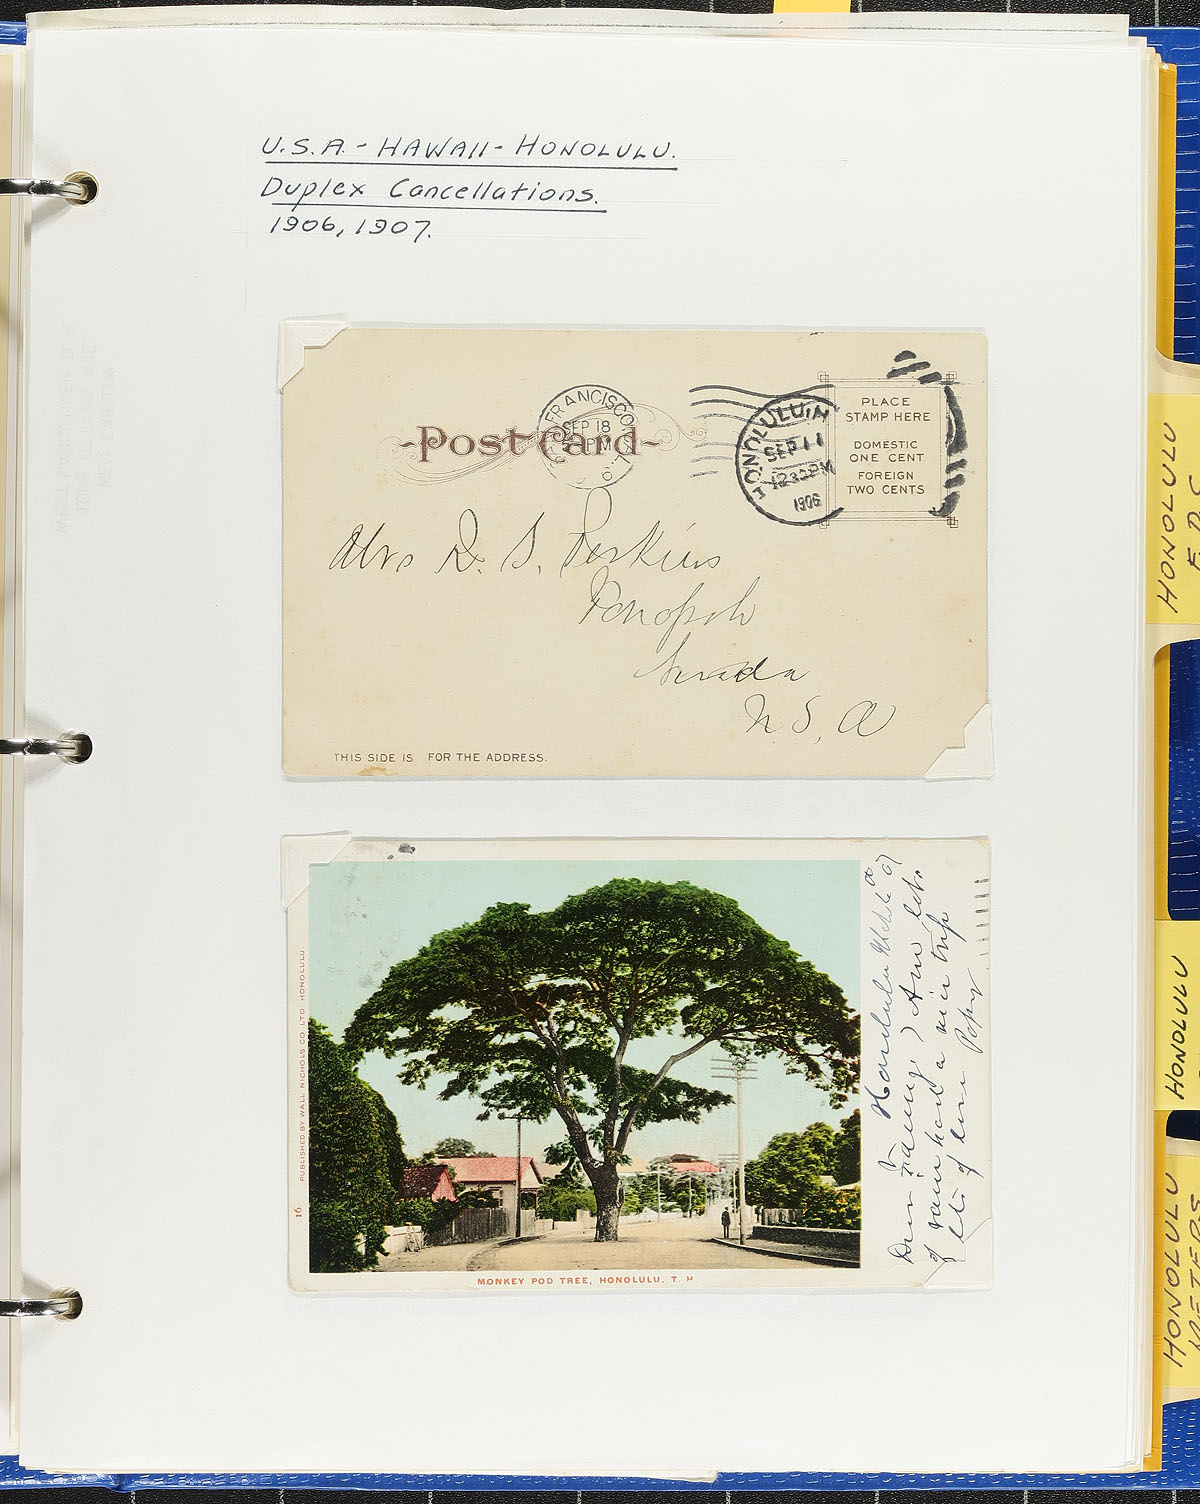 U.S.A. - HAWAII - HONOLULU.
Duplex Cancellations.
1906, 1907.
FRANCISCO
SEP 18
PM
Post Card
HONOLULU
SEP 11
12 30 PM
1906
PLACE
STAMP HERE
DOMESTIC
ONE CENT
FOREIGN
TWO CENTS
Mrs D. S. Perkins
Tonopah
Nevada
U. S. A
THIS SIDE IS FOR THE ADDRESS.
PUBLISHED BY WALL NICHOLS CO. LTD HONOLULU
16
MONKEY POD TREE, HONOLULU. T. H
Honolulu
Dear Fanny,
of a nice trip
lots of love Papa
HONOLULU
HONOLULU
HONOLULU
METERS